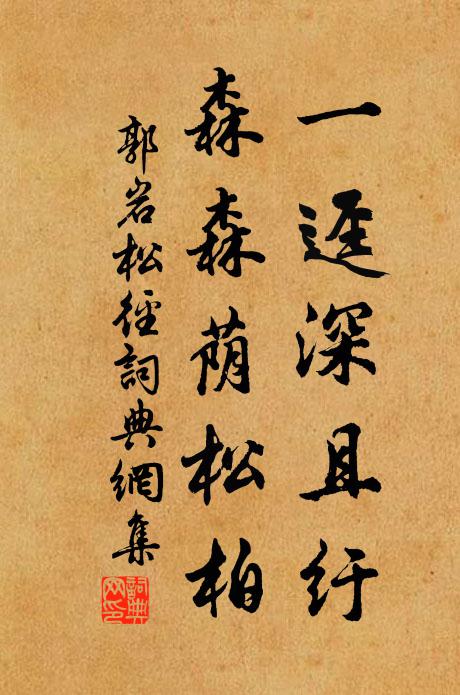 一逕深且紆
森森荫松柏
郭岩松徑詞典網集
詞典网印